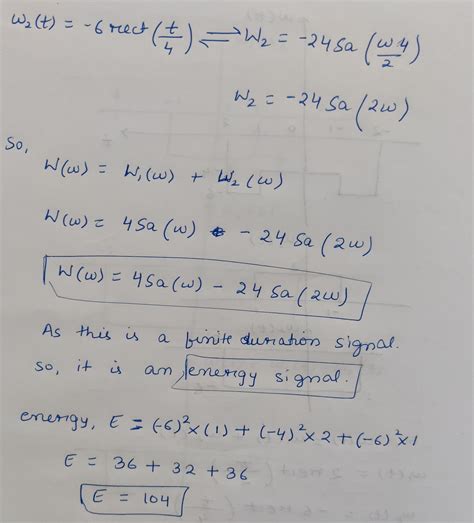 w₂(t) = -6 rect(t/4) ⇌ W₂ = -24 Sa(ω4/2)
W₂ = -24 Sa(2ω)
So,
W(ω) = W₁(ω) + W₂(ω)
W(ω) = 4 Sa(ω) - 24 Sa(2ω)
W(ω) = 4 Sa(ω) - 24 Sa(2ω)
As this is a finite duration signal.
so, it is an energy signal.
energy, E = (-6)²×(1) + (-4)²×2 + (-6)²×1
E = 36 + 32 + 36
E = 104